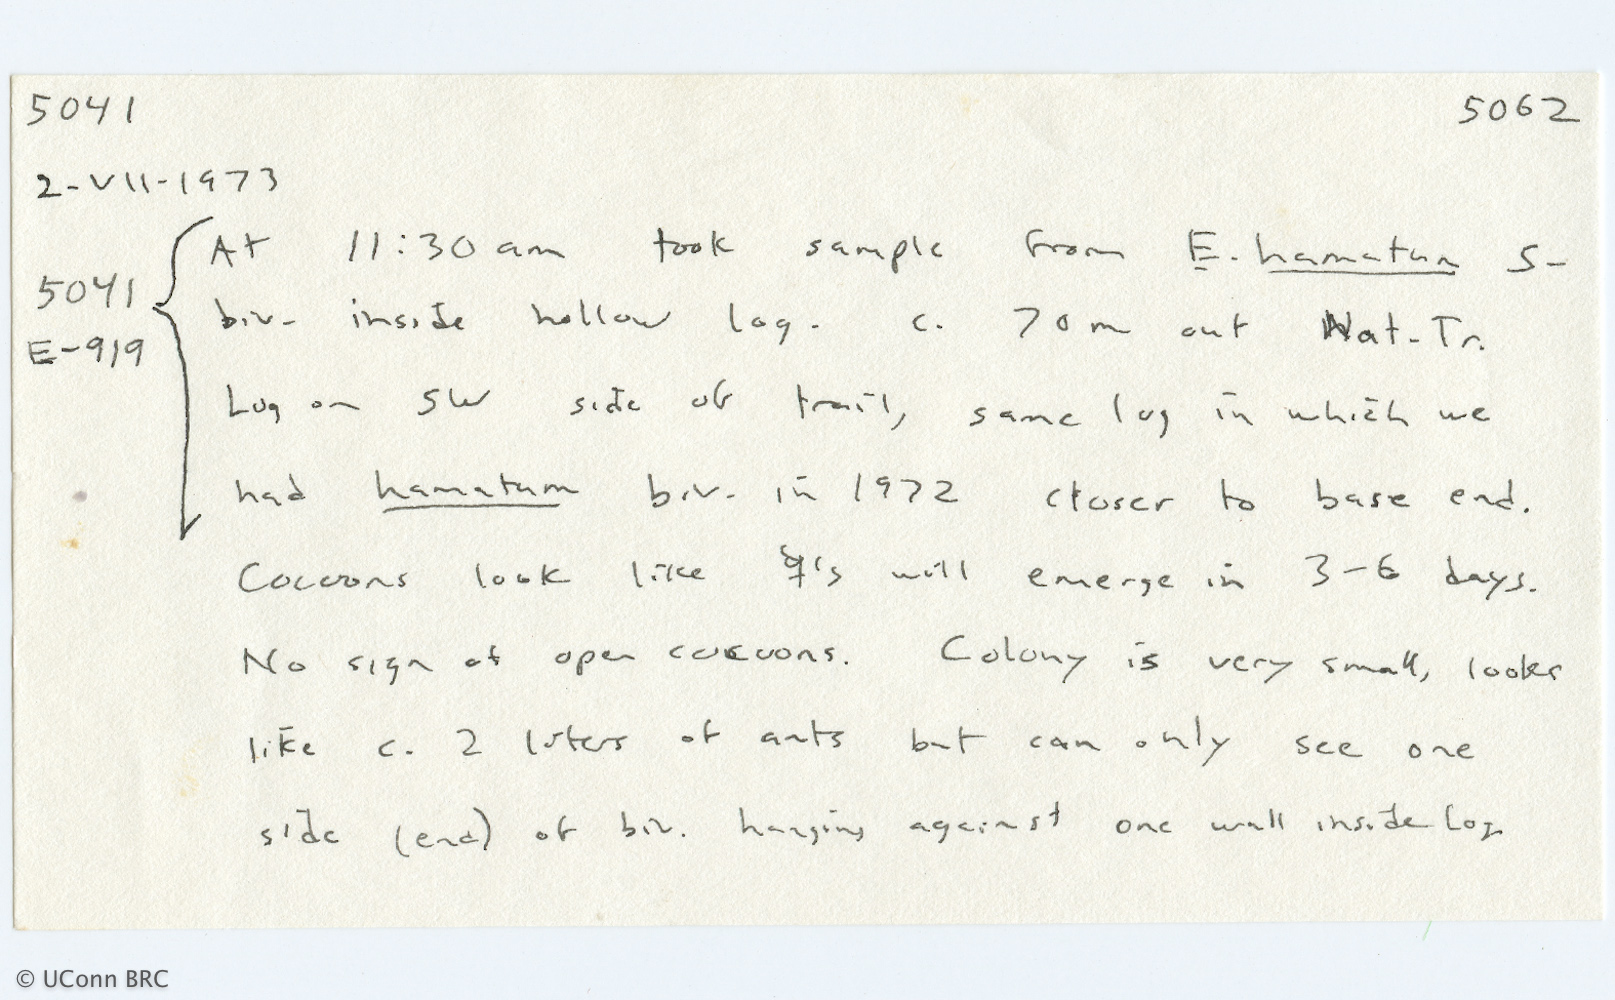 5041 5062
2-VII-1973
At 11:30 am took sample from E. hamatum S-
5041
biv. inside hollow log. c. 70m out Nat. Tr.
E-919
Log on SW side of trail, same log in which we
had hamatum biv. in 1972 closer to base end.
Cocoons look like ☿'s will emerge in 3-6 days.
No sign of open cocoons. Colony is very small, looks
like c. 2 liters of ants but can only see one
side (end) of biv. hanging against one wall inside log
© UConn BRC